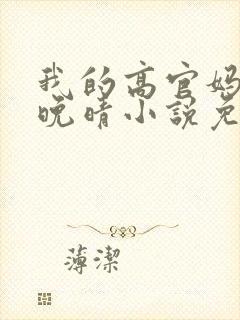 我的高官妈
晚晴小说免
薄潔